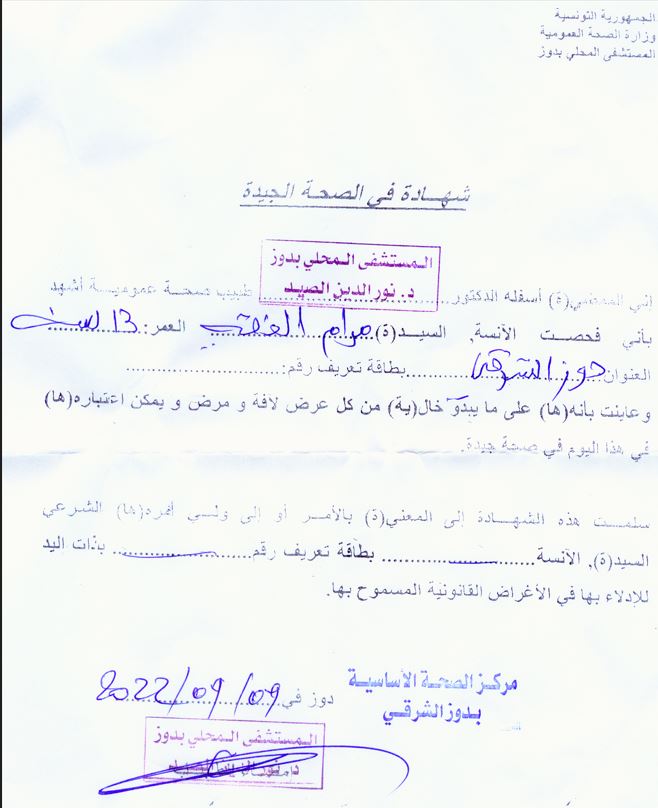 الجمهورية التونسية
وزارة الصحة العمومية
المستشفى المحلي بدوز
شهادة في الصحة الجيدة
المستشفى المحلي بدوز
د. نور الدين الصيد
اني الممضي(ة) أسفله الدكتور.................... طبيب صحة عمومية أشهد
بأني فحصت الآنسة, السيد(ة) مرام العمر: 13 سنة
العنوان دوز الشرقي بطاقة تعريف رقم:....................
و عاينت بأنه(ها) على ما يبدو خال(ية) من كل عرض لافة و مرض و يمكن اعتباره(ها)
في هذا اليوم في صحة جيدة.
سلمت هذه الشهادة إلى المعني(ة) بالأمر أو إلى ولي أمره(ها) الشرعي
السيد(ة), الآنسة.................... بطاقة تعريف رقم.................... بذات اليد
للإدلاء بها في الأغراض القانونية المسموح بها.
مركز الصحة الأساسية
بدوز الشرقي
دوز في 2022/09/09
المستشفى المحلي بدوز
د. نور الدين الصيد